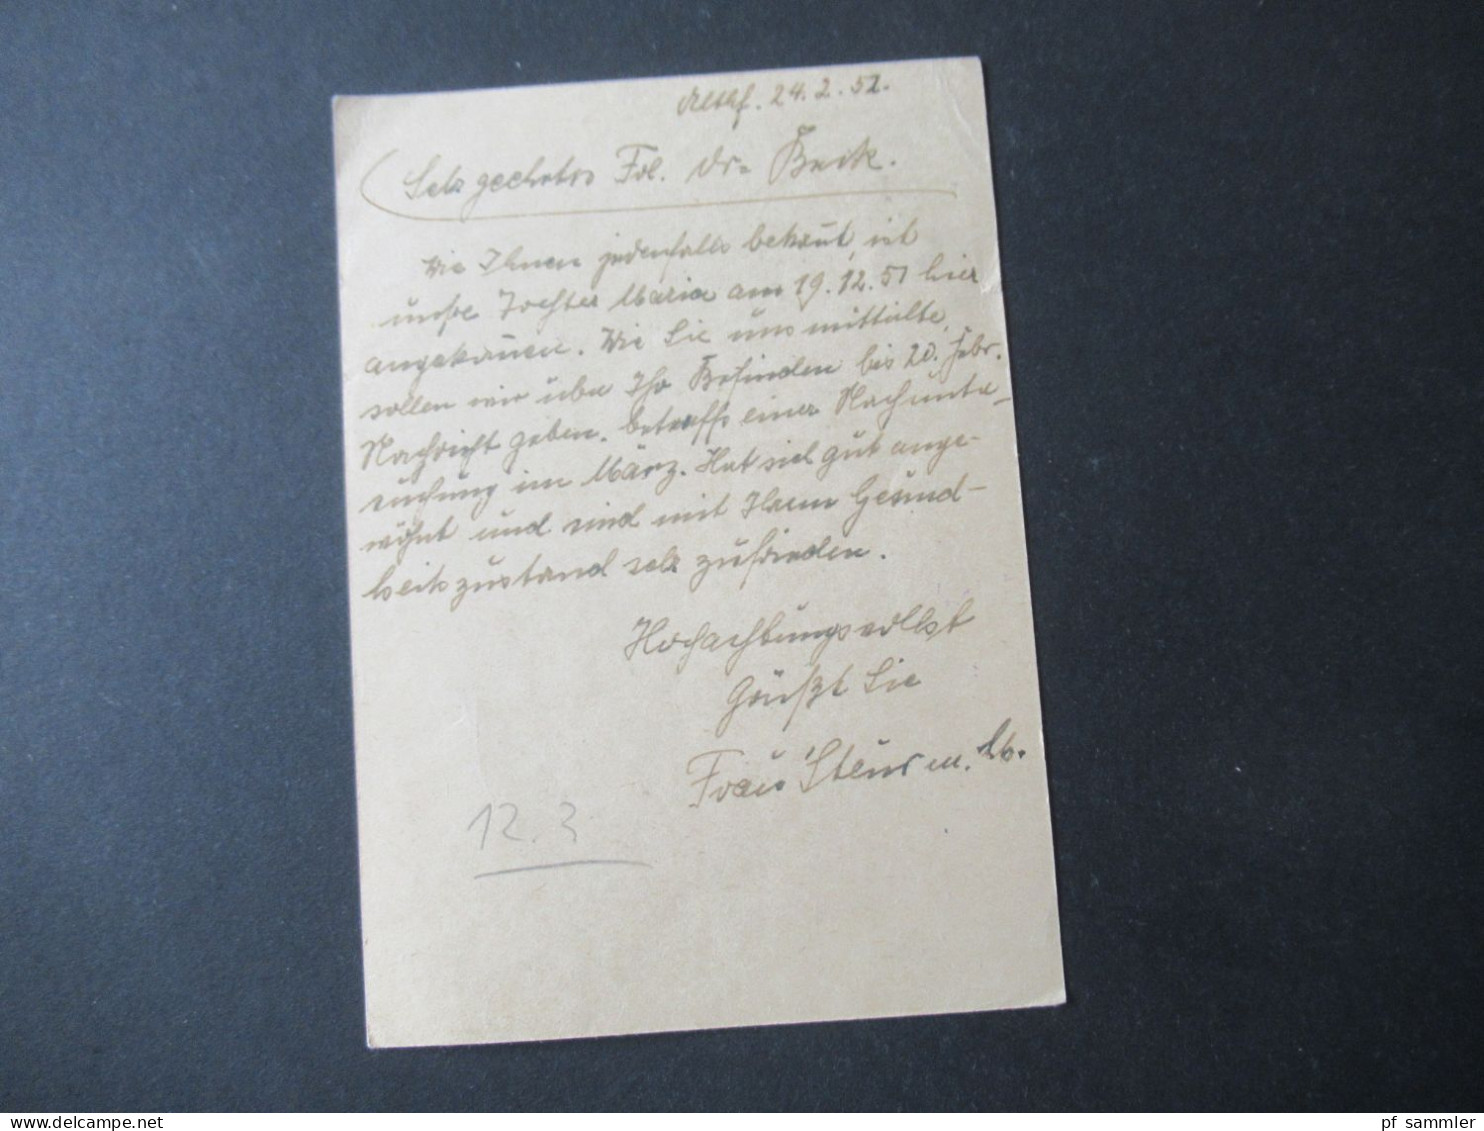 24.2.52.
Sehr geehrtes Frl. Dr. Beck.
Wie Ihnen jedenfalls bekannt, ist
unsre Tochter Maria am 19.12.51 hier
angekommen. Wie Sie uns mittailte,
sollen wir über Ihr Befinden bis 20. Febr.
Nachricht geben. betreffs einer Nachunte-
suchung im März. Hat sich gut ange-
wöhnt und sind mit Ihrem Gesund-
heitszustand sehr zufrieden.
Hochachtungsvollst
Grüßt Sie
Frau Sturm.
12.3
delcampe.net
pf_sammler